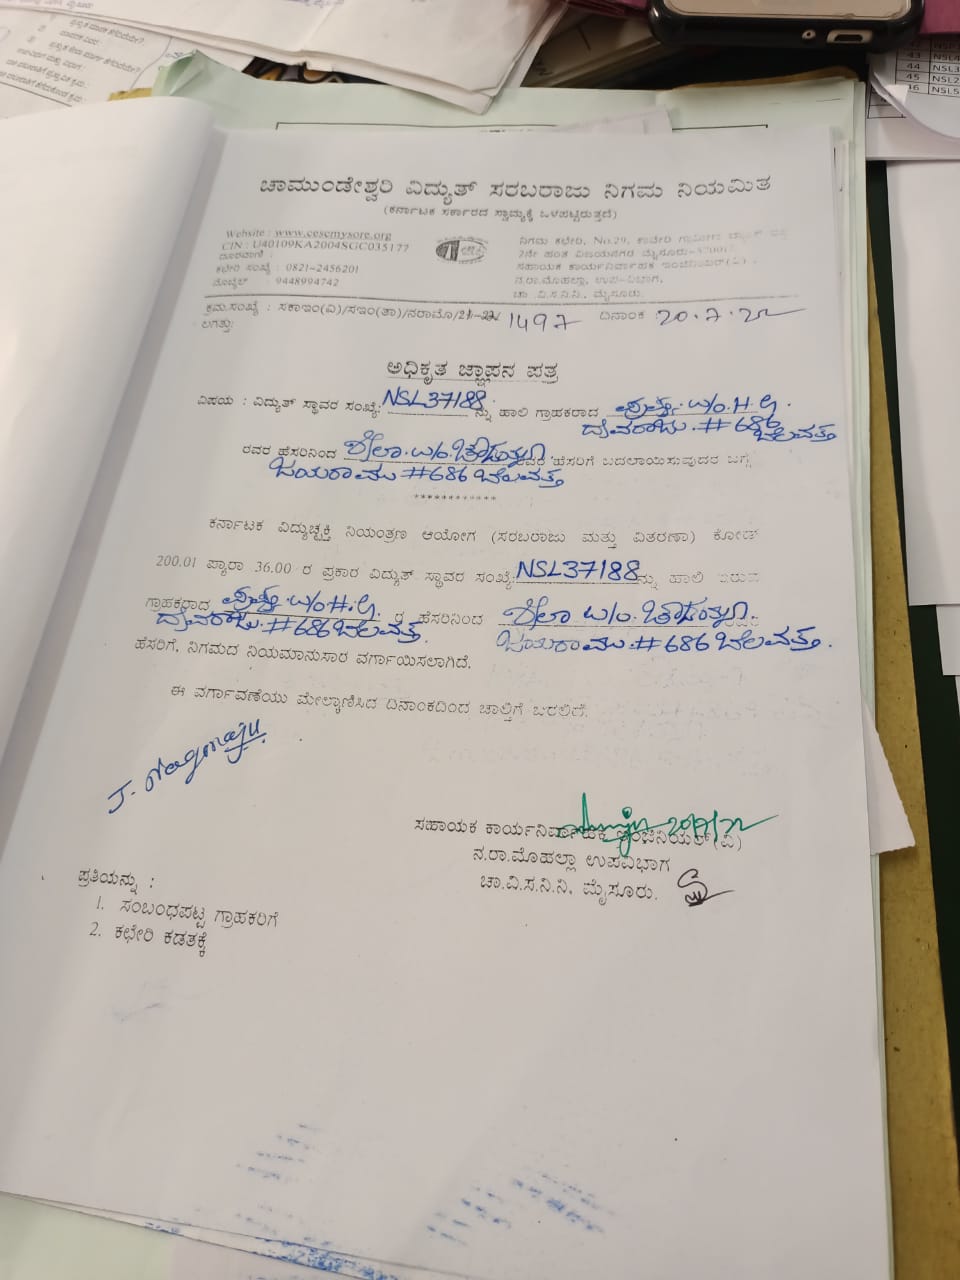 ಚಾಮುಂಡೇಶ್ವರಿ ವಿದ್ಯುತ್ ಸರಬರಾಜು ನಿಗಮ ನಿಯಮಿತ
(ಕರ್ನಾಟಕ ಸರ್ಕಾರದ ಸ್ವಾಮ್ಯಕ್ಕೆ ಒಳಪಟ್ಟಿರುತ್ತದೆ)
Website : www.cescmysore.org
CIN : U40109KA2004SGC035177
ದೂರವಾಣಿ :
ಕಛೇರಿ ಸಂಖ್ಯೆ : 0821-2456201
ಮೊಬೈಲ್ : 9448994742
ನಿಗಮ ಕಛೇರಿ, No.29, ಕಾವೇರಿ ಗ್ರಾಮೀಣ
2ನೇ ಹಂತ ವಿಜಯನಗರ ಮೈಸೂರು
ಸಹಾಯಕ ಕಾರ್ಯನಿರ್ವಾಹಕ ಇಂಜಿನಿಯರ್(ವಿ)
ನ.ರಾ.ಮೊಹಲ್ಲಾ, ಉಪ-ವಿಭಾಗ,
ಚಾ.ವಿ.ಸ.ನಿ.ನಿ., ಮೈಸೂರು.
ಕ್ರಮ.ಸಂಖ್ಯೆ : ಸಕಾಇಂ(ವಿ)/ಸಇಂ(ತಾ)/ನರಾಮೊ/ 1497 ದಿನಾಂಕ :20.7.22
ಲಗತ್ತು:
ಅಧಿಕೃತ ಜ್ಞಾಪನ ಪತ್ರ
ವಿಷಯ : ವಿದ್ಯುತ್ ಸ್ಥಾವರ ಸಂಖ್ಯೆ: NSL37188 ನ್ನು ಹಾಲಿ ಗ್ರಾಹಕರಾದ w/o. H.
#686 ಬೆಲವತ್ತ
ರವರ ಹೆಸರಿನಿಂದ ಶೈಲಾ. w/o. ರವರ ಹೆಸರಿಗೆ ಬದಲಾಯಿಸುವುದರ ಬಗ್ಗೆ
ಜಯರಾಮು #686 ಬೆಲವತ್ತ
************
ಕರ್ನಾಟಕ ವಿದ್ಯುಚ್ಛಕ್ತಿ ನಿಯಂತ್ರಣ ಆಯೋಗ (ಸರಬರಾಜು ಮತ್ತು ವಿತರಣಾ) ಕೋಡ್
200.01 ಪ್ಯಾರಾ 36.00 ರ ಪ್ರಕಾರ ವಿದ್ಯುತ್ ಸ್ಥಾವರ ಸಂಖ್ಯೆ: NSL37188 ನ್ನು ಹಾಲಿ ಇರುವ
ಗ್ರಾಹಕರಾದ w/o H. ರ ಹೆಸರಿನಿಂದ ಶೈಲಾ w/o.
#686 ಬೆಲವತ್ತ. ಜಯರಾಮು. #686 ಬೆಲವತ್ತ.
ಹೆಸರಿಗೆ, ನಿಗಮದ ನಿಯಮಾನುಸಾರ ವರ್ಗಾಯಿಸಲಾಗಿದೆ.
ಈ ವರ್ಗಾವಣೆಯು ಮೇಲ್ಕಾಣಿಸಿದ ದಿನಾಂಕದಿಂದ ಚಾಲ್ತಿಗೆ ಬರಲಿದೆ.
J. Nagaraju
ಸಹಾಯಕ ಕಾರ್ಯನಿರ್ವಾಹಕ ಇಂಜಿನಿಯರ್(ವಿ)
ನ.ರಾ.ಮೊಹಲ್ಲಾ ಉಪವಿಭಾಗ
ಚಾ.ವಿ.ಸ.ನಿ.ನಿ, ಮೈಸೂರು.
ಪ್ರತಿಯನ್ನು :
1. ಸಂಬಂಧಪಟ್ಟ ಗ್ರಾಹಕರಿಗೆ
2. ಕಛೇರಿ ಕಡತಕ್ಕೆ